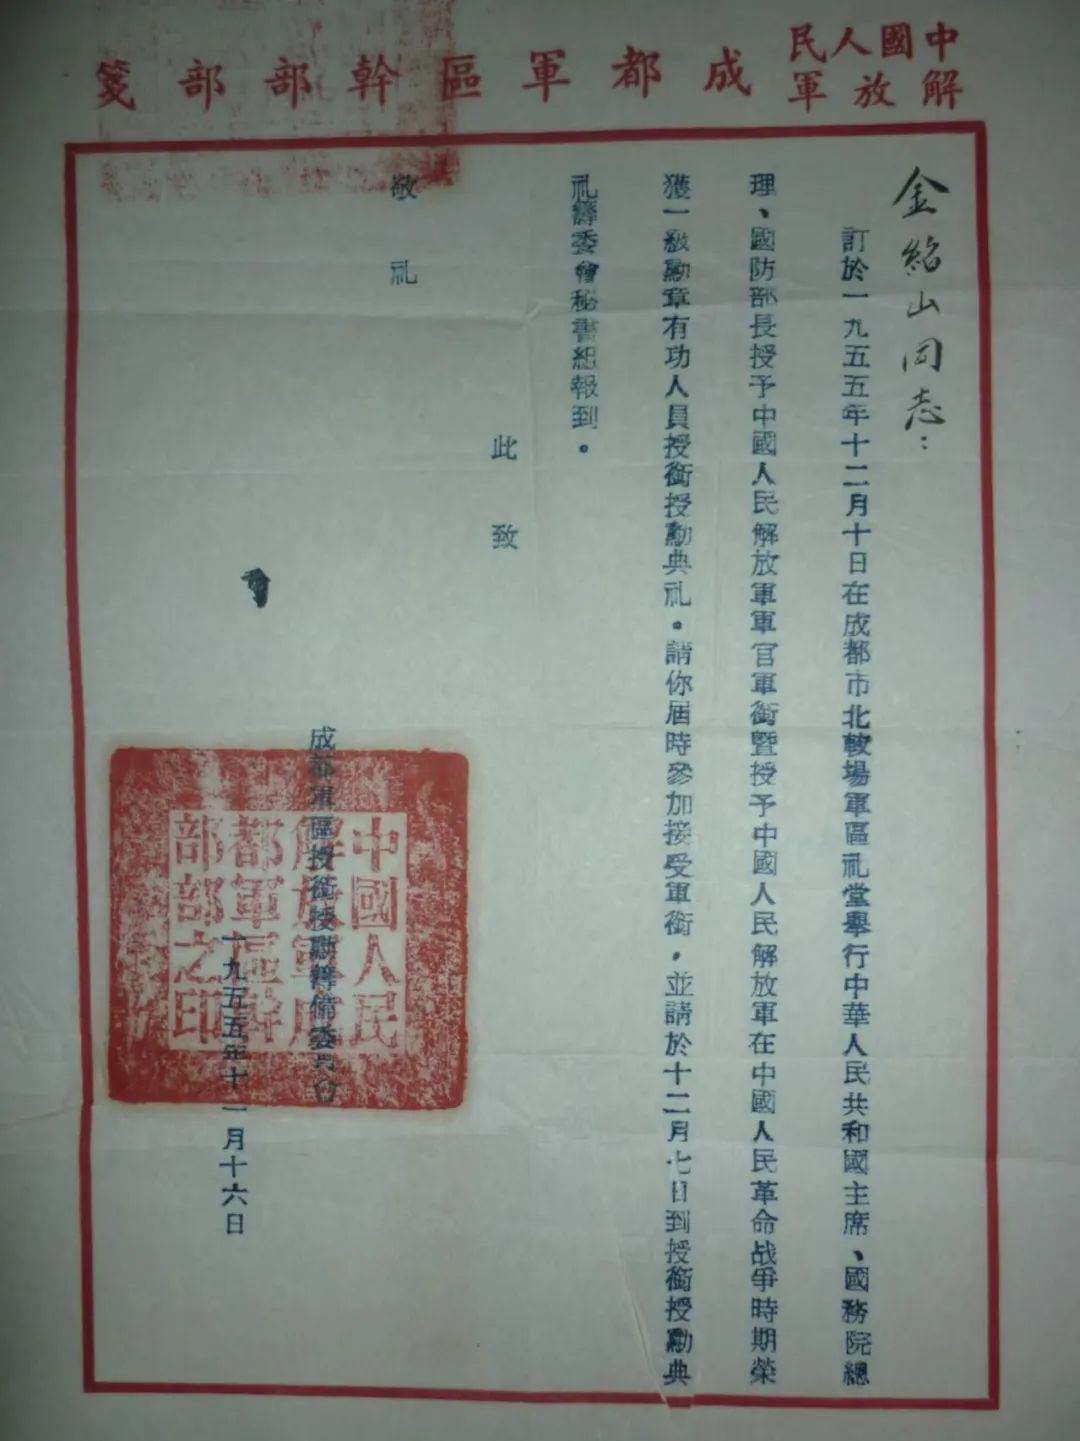 中國人民解放軍成都軍區幹部部箋
金紹山同志：
訂於一九五五年十二月十日在成都市北較場軍區礼堂舉行中華人民共和國主席、國務院總
理、國防部長授予中國人民解放軍軍官軍銜暨授予中國人民解放軍在中國人民革命战爭時期榮
獲一級勳章有功人員授銜授勳典礼。請你屆時參加接受軍銜，並請於十二月七日到授銜授勳典
礼籌委會秘書組報到。
此致
敬礼
成都軍區授銜授勳籌備委員會
一九五五年十一月十六日
中國人民
解放軍成
都軍區幹
部部之印